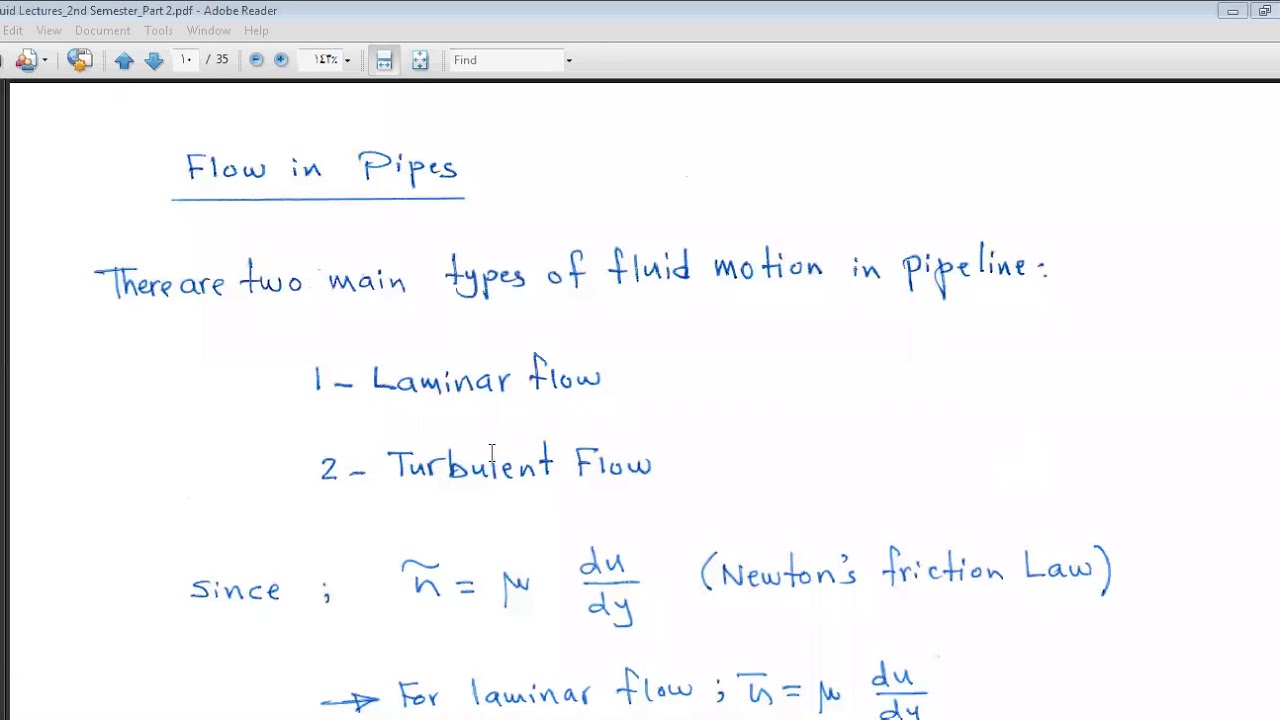 uid Lectures_2nd Semester_Part 2.pdf - Adobe Reader
Edit View Document Tools Window Help
١٠ / 35 ١٤٣٪ Find
Flow in Pipes
There are two main types of fluid motion in pipeline:
1- Laminar flow
2- Turbulent Flow
since ; = μ du/dy (Newton's friction Law)
→ For laminar flow ; = μ du/dy